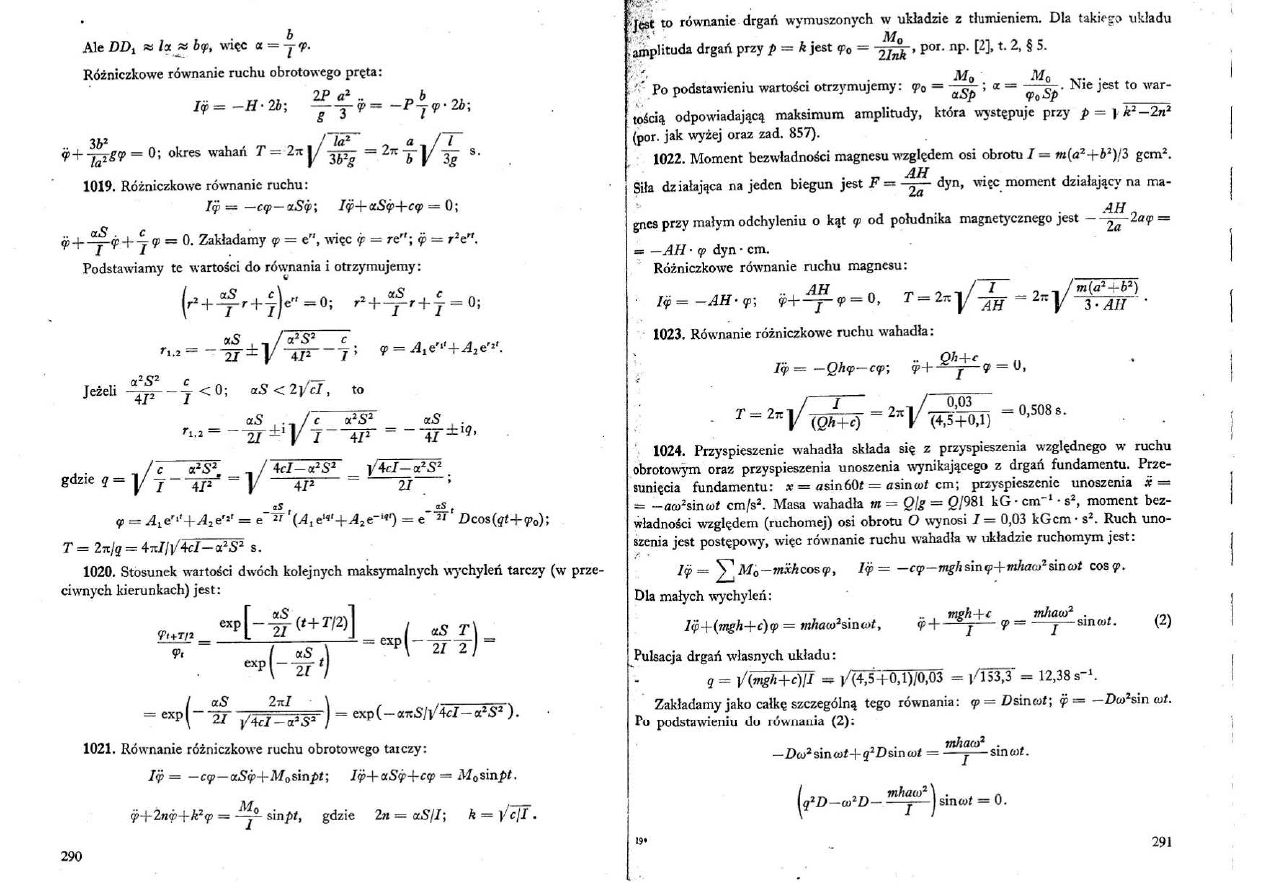 Ale DD₁ ≈ lα ≈ bφ, więc α = b/l φ.
Różniczkowe równanie ruchu obrotowego pręta:
Iφ̈ = −H · 2b; 2P/g a²/3 φ̈ = −P b/l φ · 2b;
φ̈ + 3b²/la² gφ = 0; okres wahań T = 2π √(la²/3b²g) = 2π a/b √(l/3g) s.
1019. Różniczkowe równanie ruchu:
Iφ̈ = −cφ−αSφ̇; Iφ̈+αSφ̇+cφ = 0;
φ̈ + αS/I φ̇ + c/I φ = 0. Zakładamy φ = eʳᵗ, więc φ̇ = reʳᵗ; φ̈ = r²eʳᵗ.
Podstawiamy te wartości do równania i otrzymujemy:
(r² + αS/I r + c/I)eʳᵗ = 0; r² + αS/I r + c/I = 0;
r₁.₂ = − αS/2I ± √(α²S²/4I² − c/I); φ = A₁e^(r₁t)+A₂e^(r₂t).
Jeżeli α²S²/4I² − c/I < 0; αS < 2√(cI), to
r₁.₂ = − αS/2I ± i √(c/I − α²S²/4I²) = − αS/4I ± iq,
gdzie q = √(c/I − α²S²/4I²) = √((4cI−α²S²)/4I²) = √(4cI−α²S²)/2I;
φ = A₁e^(r₁t)+A₂e^(r₂t) = e^(−αS/2I t)(A₁e^(iqt)+A₂e^(−iqt)) = e^(−αS/2I t) D cos(qt+φ₀);
T = 2π/q = 4πI/√(4cI−α²S²) s.
1020. Stosunek wartości dwóch kolejnych maksymalnych wychyleń tarczy (w prze-
ciwnych kierunkach) jest:
φt+T/2/φt = exp[−αS/2I (t+T/2)]/exp(−αS/2I t) = exp(−αS/2I T/2) =
= exp(−αS/2I 2πI/√(4cI−α²S²)) = exp(−απS/√(4cI−α²S²)).
1021. Równanie różniczkowe ruchu obrotowego tarczy:
Iφ̈ = −cφ−αSφ̇+M₀sinpt; Iφ̈+αSφ̇+cφ = M₀sinpt.
φ̈+2nφ̇+k²φ = M₀/I sinpt, gdzie 2n = αS/I; k = √(c/I).
290
Jest to równanie drgań wymuszonych w układzie z tłumieniem. Dla takiego układu
amplituda drgań przy p = k jest φ₀ = M₀/2Ink, por. np. [2], t. 2, § 5.
Po podstawieniu wartości otrzymujemy: φ₀ = M₀/αSp; α = M₀/φ₀Sp. Nie jest to war-
tością odpowiadającą maksimum amplitudy, która występuje przy p = √(k²−2n²)
(por. jak wyżej oraz zad. 857).
1022. Moment bezwładności magnesu względem osi obrotu I = m(a²+b²)/3 gcm².
Siła działająca na jeden biegun jest F = AH/2a dyn, więc moment działający na ma-
gnes przy małym odchyleniu o kąt φ od południka magnetycznego jest − AH/2a 2aφ =
= −AH · φ dyn · cm.
Różniczkowe równanie ruchu magnesu:
Iφ̈ = −AH · φ; φ̈+ AH/I φ = 0, T = 2π √(I/AH) = 2π √(m(a²+b²)/3 · AH).
1023. Równanie różniczkowe ruchu wahadła:
Iφ̈ = −Qhφ−cφ; φ̈+ (Qh+c)/I φ = 0,
T = 2π √(I/(Qh+c)) = 2π √(0,03/(4,5+0,1)) = 0,508 s.
1024. Przyspieszenie wahadła składa się z przyspieszenia względnego w ruchu
obrotowym oraz przyspieszenia unoszenia wynikającego z drgań fundamentu. Prze-
sunięcia fundamentu: x = asin60t = asinωt cm; przyspieszenie unoszenia ẍ =
= −aω²sinωt cm/s². Masa wahadła m = Q/g = Q/981 kG · cm⁻¹ · s², moment bez-
władności względem (ruchomej) osi obrotu O wynosi I = 0,03 kGcm · s². Ruch uno-
szenia jest postępowy, więc równanie ruchu wahadła w układzie ruchomym jest:
Iφ̈ = ∑ M₀−mẍhcosφ, Iφ̈ = −cφ−mgh sinφ+mhaω² sinωt cosφ.
Dla małych wychyleń:
Iφ̈+(mgh+c)φ = mhaω²sinωt, φ̈ + (mgh+c)/I φ = mhaω²/I sinωt. (2)
Pulsacja drgań własnych układu:
q = √((mgh+c)/I) = √((4,5+0,1)/0,03) = √(153,3) = 12,38 s⁻¹.
Zakładamy jako całkę szczególną tego równania: φ = Dsinωt; φ̈ = −Dω²sin ωt.
Po podstawieniu do równania (2):
−Dω² sinωt+q²D sinωt = mhaω²/I sinωt.
(q²D−ω²D− mhaω²/I) sinωt = 0.
19*
291